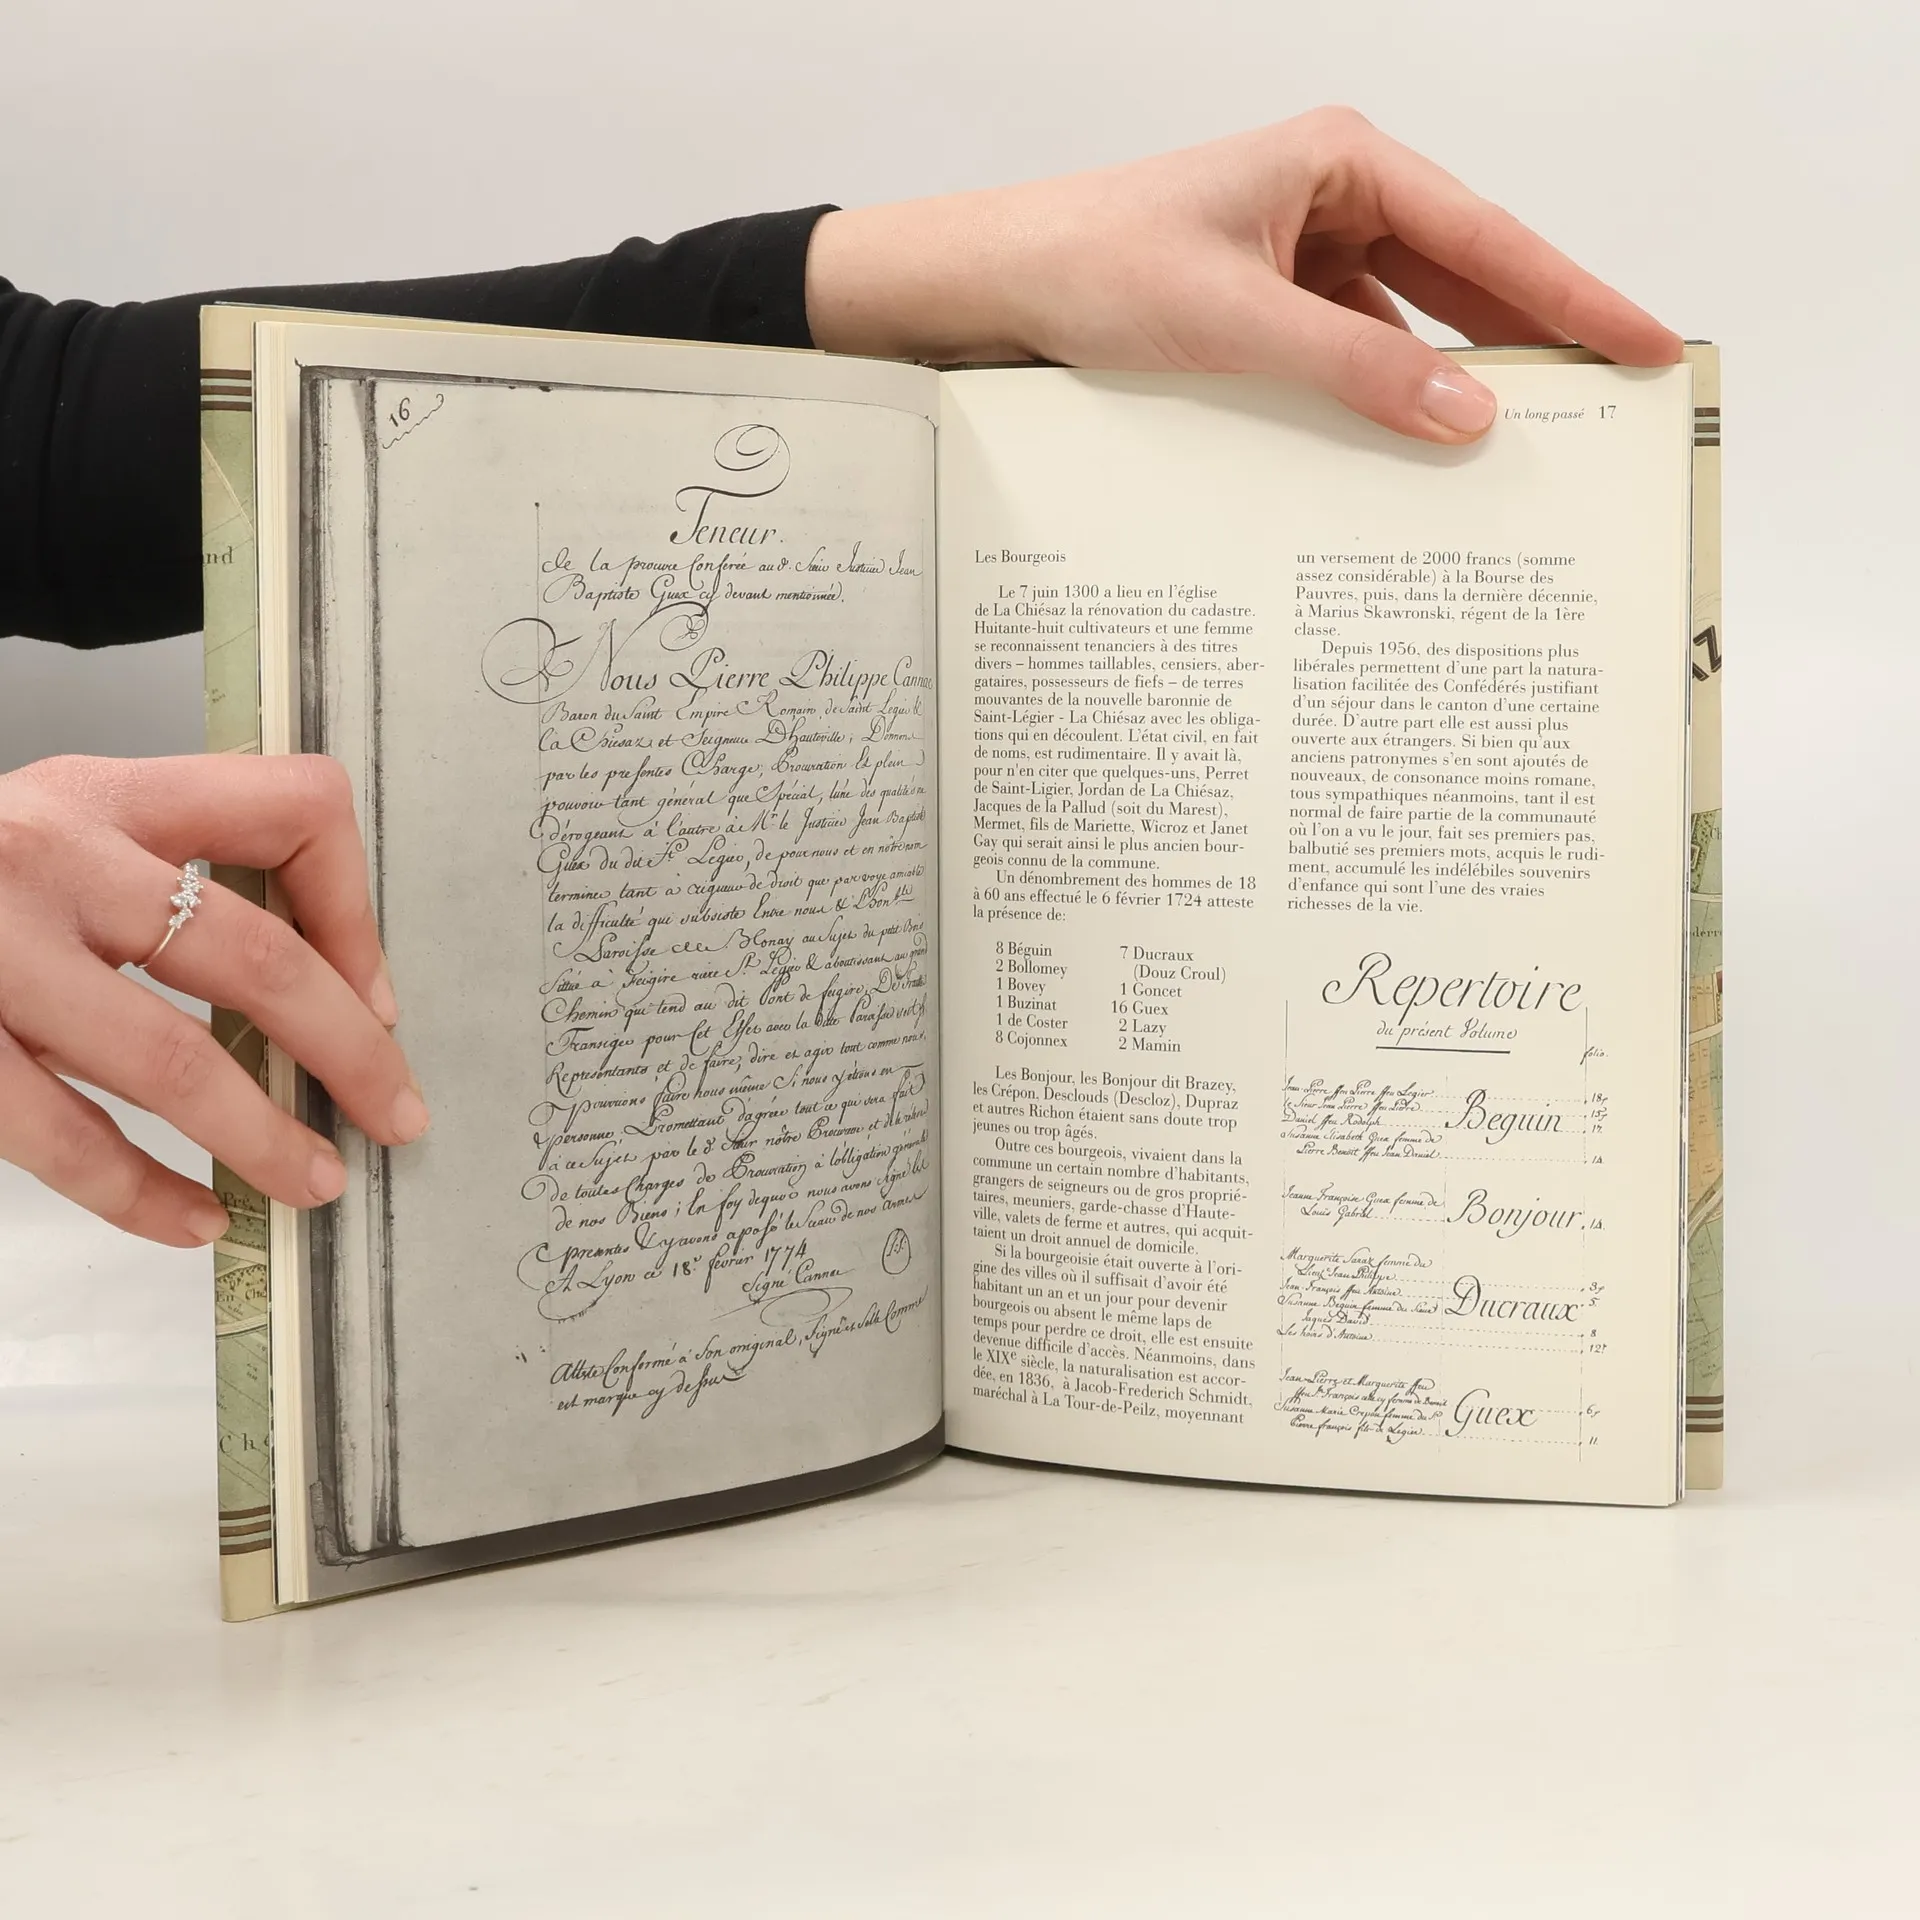 16
Teneur.
de la procure Conferée au d. Sieur Justicier Jean
Baptiste Guex cy devant mentionnée.
Nous Pierre Philippe Cannac
Baron du Saint Empire Romain, de Saint Legier &
la Chiesaz et Seigneur D'hauteville, Donnons
par les presentes Charge, Procuration et plein
pouvoir tant général que Spécial, l'une des qualités ne
dérogeant à l'autre à Mr. le Justicier Jean Baptiste
Guex du dit St. Legier, de pour nous et en nôtre nom
terminer tant à rigueur de droit que par voye amiable
la difficulté qui subsiste Entre nous & L'hon.ble
Paroisse de Blonay au Sujet du petit Bois
Sittué à feigire riere St. Legier & aboutissant au grand
Chemin qui tend au dit Pont de feigire, De Traiter
Transiger pour Cet Effet avec la dite Paroisse
Representants et de faire, dire et agir tout comme nous
pourrions faire nous même Si nous y étions en
personne, Promettant d'agréer tout ce qui sera fait
à ce Sujet par le d. Sieur nôtre Procureur et de le relever
de toutes Charges de Procuration à l'obligation générale
de nos Biens; En foy dequoi nous avons Signé les
presentes & y avons aposé le Sceau de nos Armes
A Lyon ce 18e. fevrier 1774
Signé Cannac
Atteste Conforme à Son original, Signé et Sellé Comme
est marqué cy dessus
Un long passé 17
Les Bourgeois
Le 7 juin 1300 a lieu en l'église
de La Chiésaz la rénovation du cadastre.
Huitante-huit cultivateurs et une femme
se reconnaissent tenanciers à des titres
divers – hommes taillables, censiers, aber-
gataires, possesseurs de fiefs – de terres
mouvantes de la nouvelle baronnie de
Saint-Légier - La Chiésaz avec les obliga-
tions qui en découlent. L'état civil, en fait
de noms, est rudimentaire. Il y avait là,
pour n'en citer que quelques-uns, Perret
de Saint-Ligier, Jordan de La Chiésaz,
Jacques de la Pallud (soit du Marest),
Mermet, fils de Mariette, Wicroz et Janet
Gay qui serait ainsi le plus ancien bour-
geois connu de la commune.
Un dénombrement des hommes de 18
à 60 ans effectué le 6 février 1724 atteste
la présence de:
8 Béguin
2 Bollomey
1 Bovey
1 Buzinat
1 de Coster
8 Cojonnex
7 Ducraux
(Douz Croul)
1 Goncet
16 Guex
2 Lazy
2 Mamin
Les Bonjour, les Bonjour dit Brazey,
les Crépon, Desclouds (Descloz), Dupraz
et autres Richon étaient sans doute trop
jeunes ou trop âgés.
Outre ces bourgeois, vivaient dans la
commune un certain nombre d'habitants,
grangers de seigneurs ou de gros proprié-
taires, meuniers, garde-chasse d'Haute-
ville, valets de ferme et autres, qui acquit-
taient un droit annuel de domicile.
Si la bourgeoisie était ouverte à l'ori-
gine des villes où il suffisait d'avoir été
habitant un an et un jour pour devenir
bourgeois ou absent le même laps de
temps pour perdre ce droit, elle est ensuite
devenue difficile d'accès. Néanmoins, dans
le XIXe siècle, la naturalisation est accor-
dée, en 1836, à Jacob-Frederich Schmidt,
maréchal à La Tour-de-Peilz, moyennant
un versement de 2000 francs (somme
assez considérable) à la Bourse des
Pauvres, puis, dans la dernière décennie,
à Marius Skawronski, régent de la 1ère
classe.
Depuis 1956, des dispositions plus
libérales permettent d'une part la natura-
lisation facilitée des Confédérés justifiant
d'un séjour dans le canton d'une certaine
durée. D'autre part elle est aussi plus
ouverte aux étrangers. Si bien qu'aux
anciens patronymes s'en sont ajoutés de
nouveaux, de consonance moins romane,
tous sympathiques néanmoins, tant il est
normal de faire partie de la communauté
où l'on a vu le jour, fait ses premiers pas,
balbutié ses premiers mots, acquis le rudi-
ment, accumulé les indélébiles souvenirs
d'enfance qui sont l'une des vraies
richesses de la vie.
Repertoire
du présent Volume
folio.
Jean Pierre ffeu Pierre ffeu Legier
le Sieur Jean Pierre ffeu Pierre
Daniel ffeu Rodolph
Susanne Elisabeth Guex femme de
Pierre Benoit ffeu Jean Daniel
Beguin
Jeanne Françoise Guex femme de
Louis Gabriel
Bonjour
14.
Marguerite femme du
Lieut. Jean Philippe
Jean François ffeu Antoine
Susanne Beguin femme du Sieur
Jaques David
Les hoirs d'Antoine
Ducraux
5.
8
Jean-Pierre et Marguerite ffeu
Susanne Marie Crepon femme du Sr.
Pierre françois fils de Legier
Guex
11.